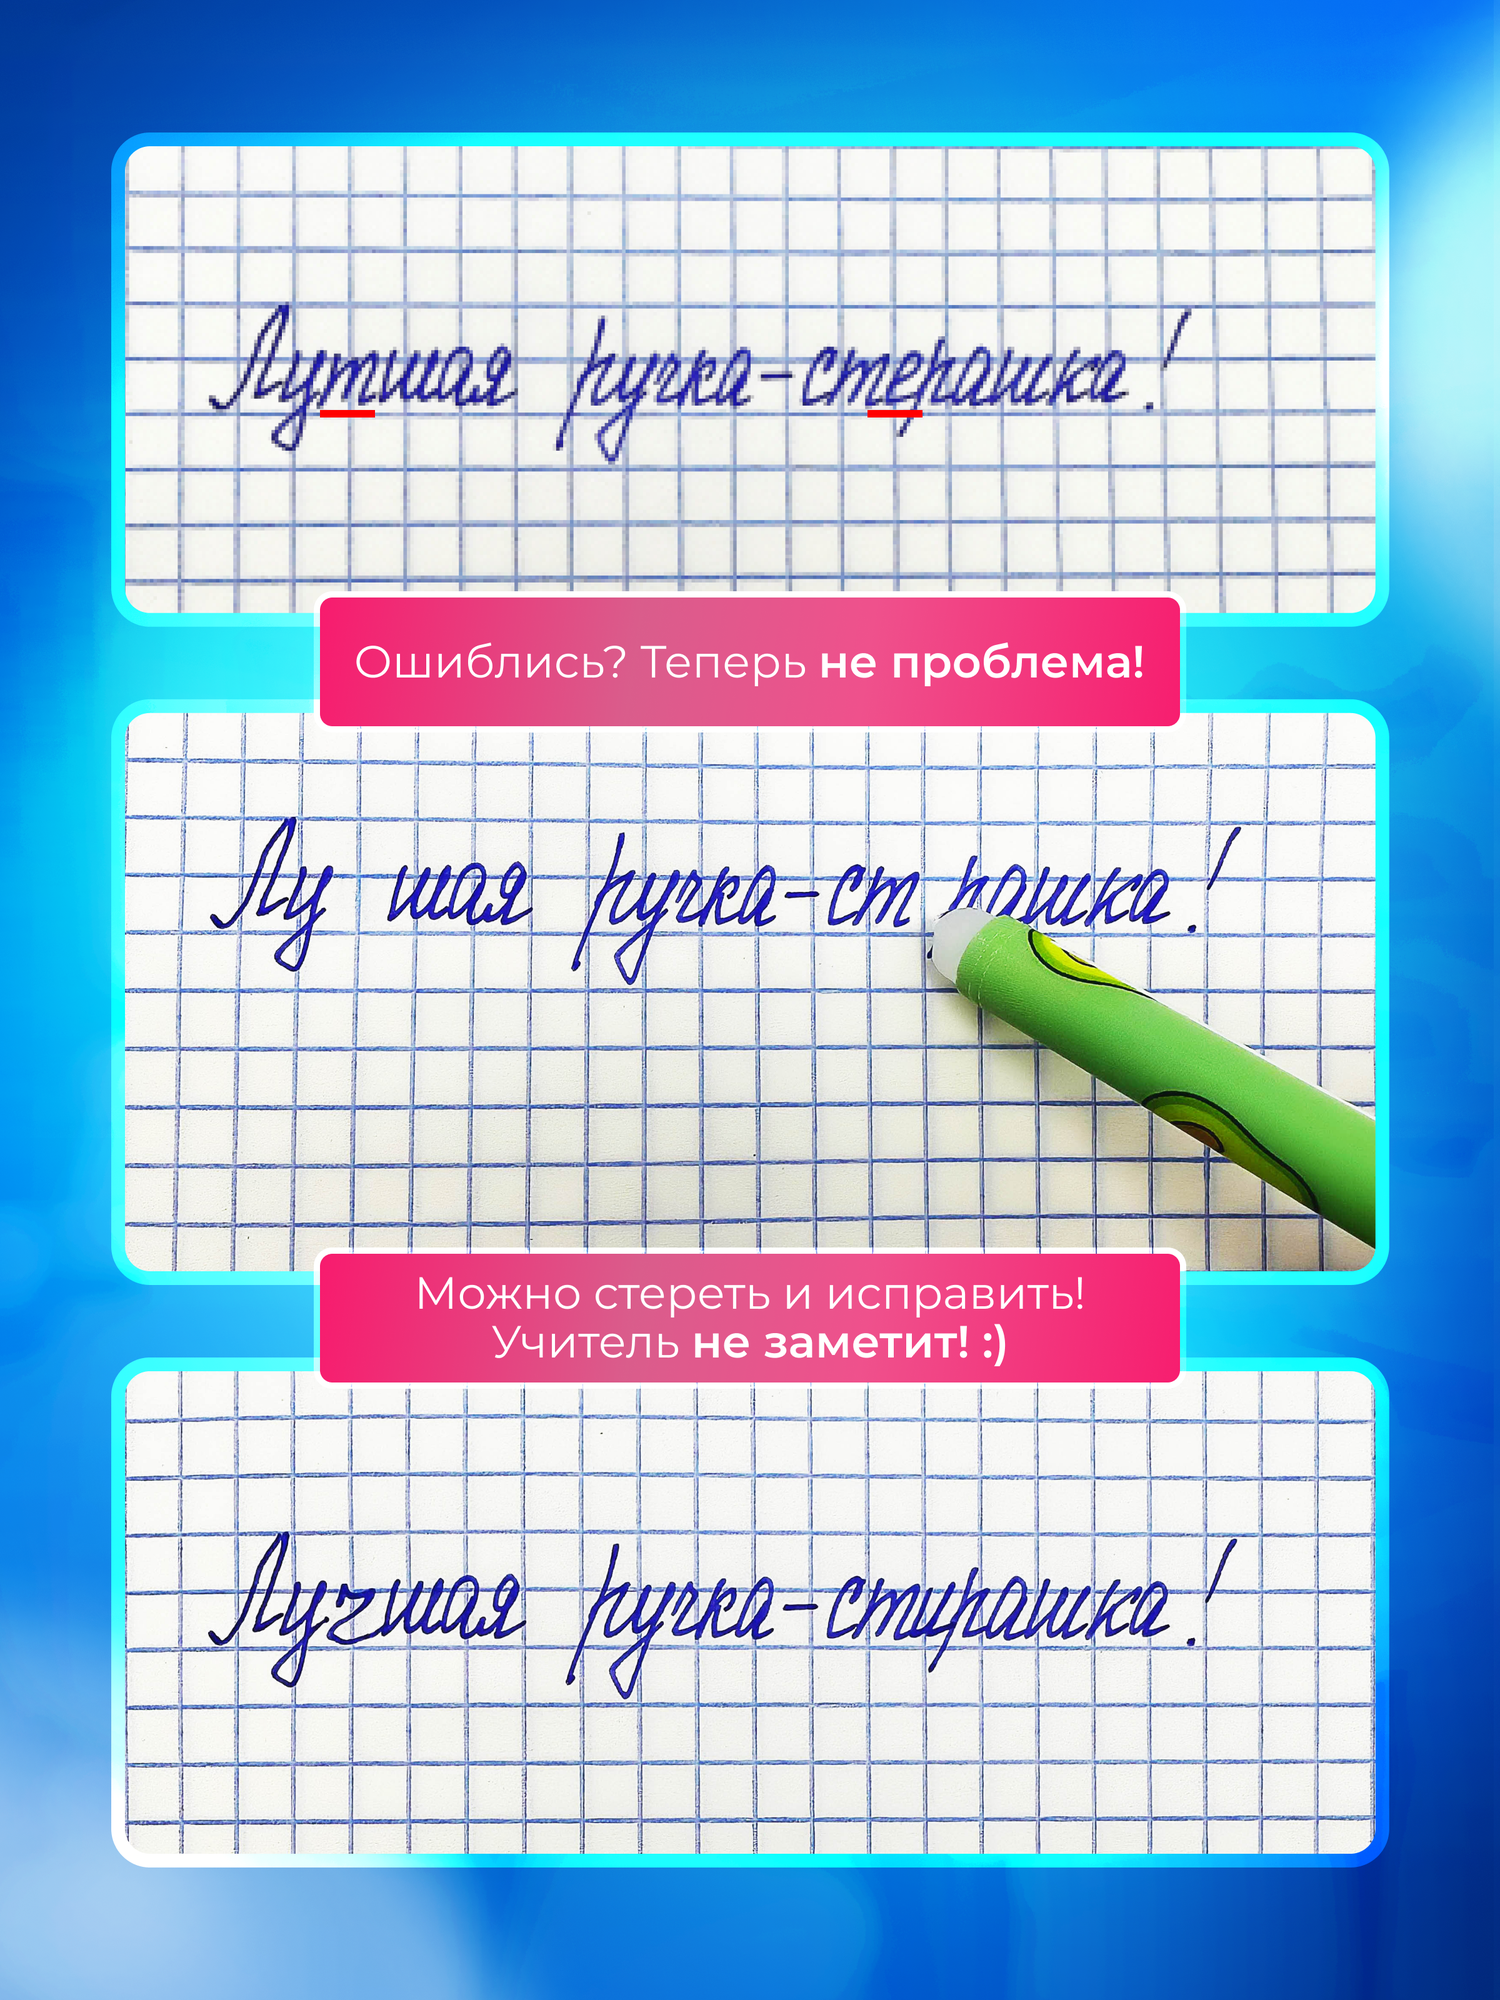 Лутшая ручка-стерашка!
Ошиблись? Теперь не проблема!
Лу шая ручка-ст рашка!
Можно стереть и исправить!
Учитель не заметит! :)
Лучшая ручка-стирашка!